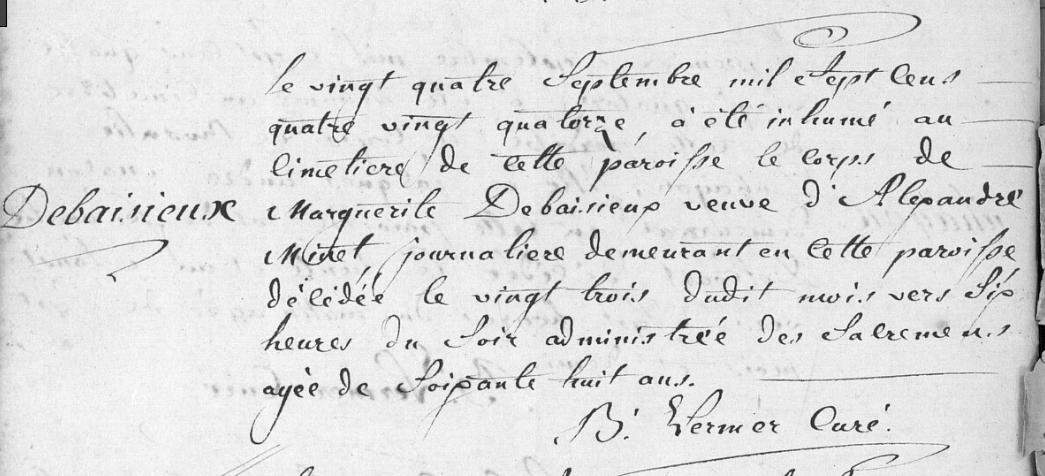 le vingt quatre Septembre mil Sept Cens
quatre vingt quatorze, a été inhumé au
Cimetiere de cette paroisse le corps de
Debaisieux
Marguerite Debaisieux veuve d'Alexandre
journaliere demeurant en Cette paroisse
décédée le vingt trois dudit mois vers Six
heures du Soir administrée des Sacremens
agée de Soixante huit ans.
B. Curé.